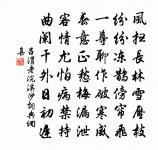 風扫長林雪壓枝
紛紛凍鵲傍簾飛
一尊聊作破寒威
春意正愁梅漏泄
客情尤怕病禁持
曲闌干外日初遲
呂渭老浣溪沙詞典湖